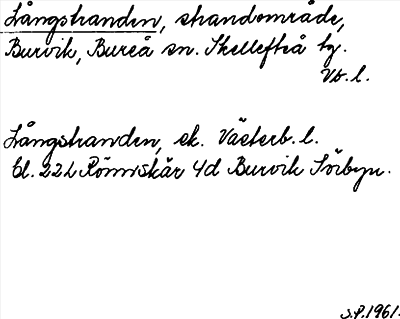 Långstranden, strandområde,
Burvik, Bureå sn. Skellefteå tg.
Vb. l.
Långstranden, ek. Västerb. l.
bl. 22L Rönnskär 4d Burvik Sörbyn.
S.P. 1961.